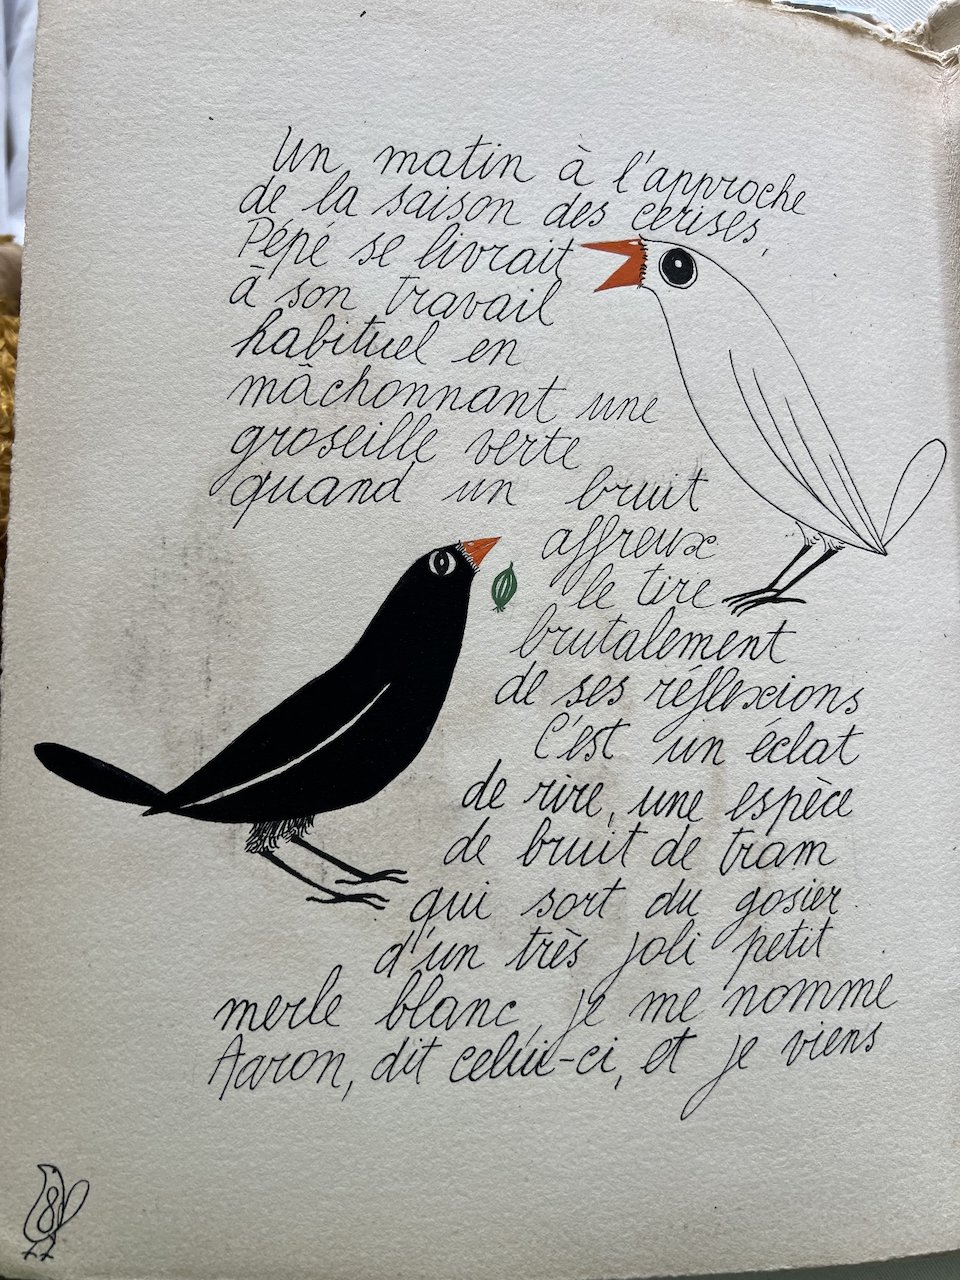 Un matin à l'approche
de la saison des cerises,
Pépé se livrait
à son travail
habituel en
mâchonnant une
groseille verte
quand un bruit
affreux
le tire
brutalement
de ses réflexions
C'est un éclat
de rire, une espèce
de bruit de tram
qui sort du gosier
d'un très joli petit
merle blanc, je me nomme
Aaron, dit celui-ci, et je viens
8